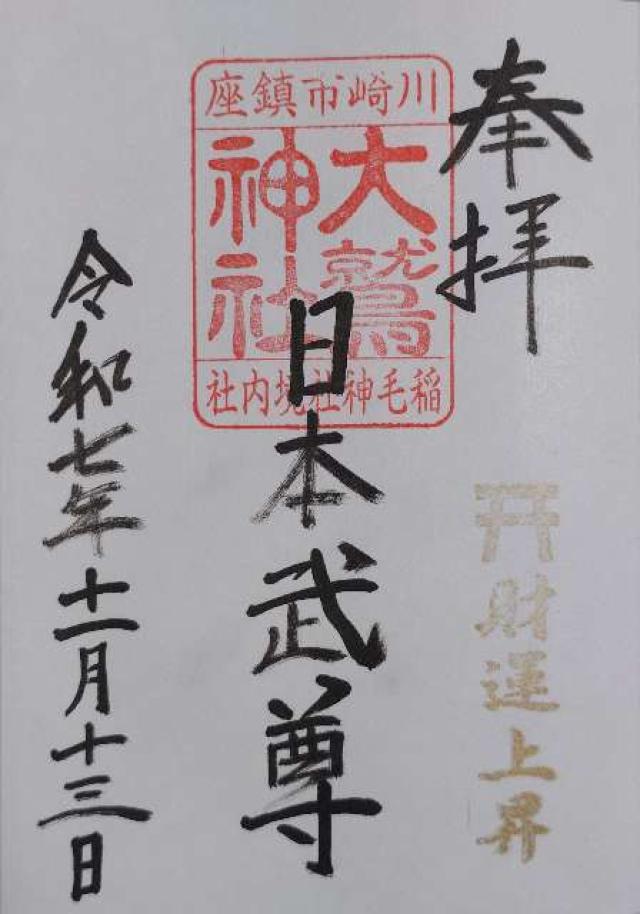 奉拝
財運上昇
川崎市鎮座
大鷲
神社
稲毛神社境内社
日本武尊
令和七年十一月十三日